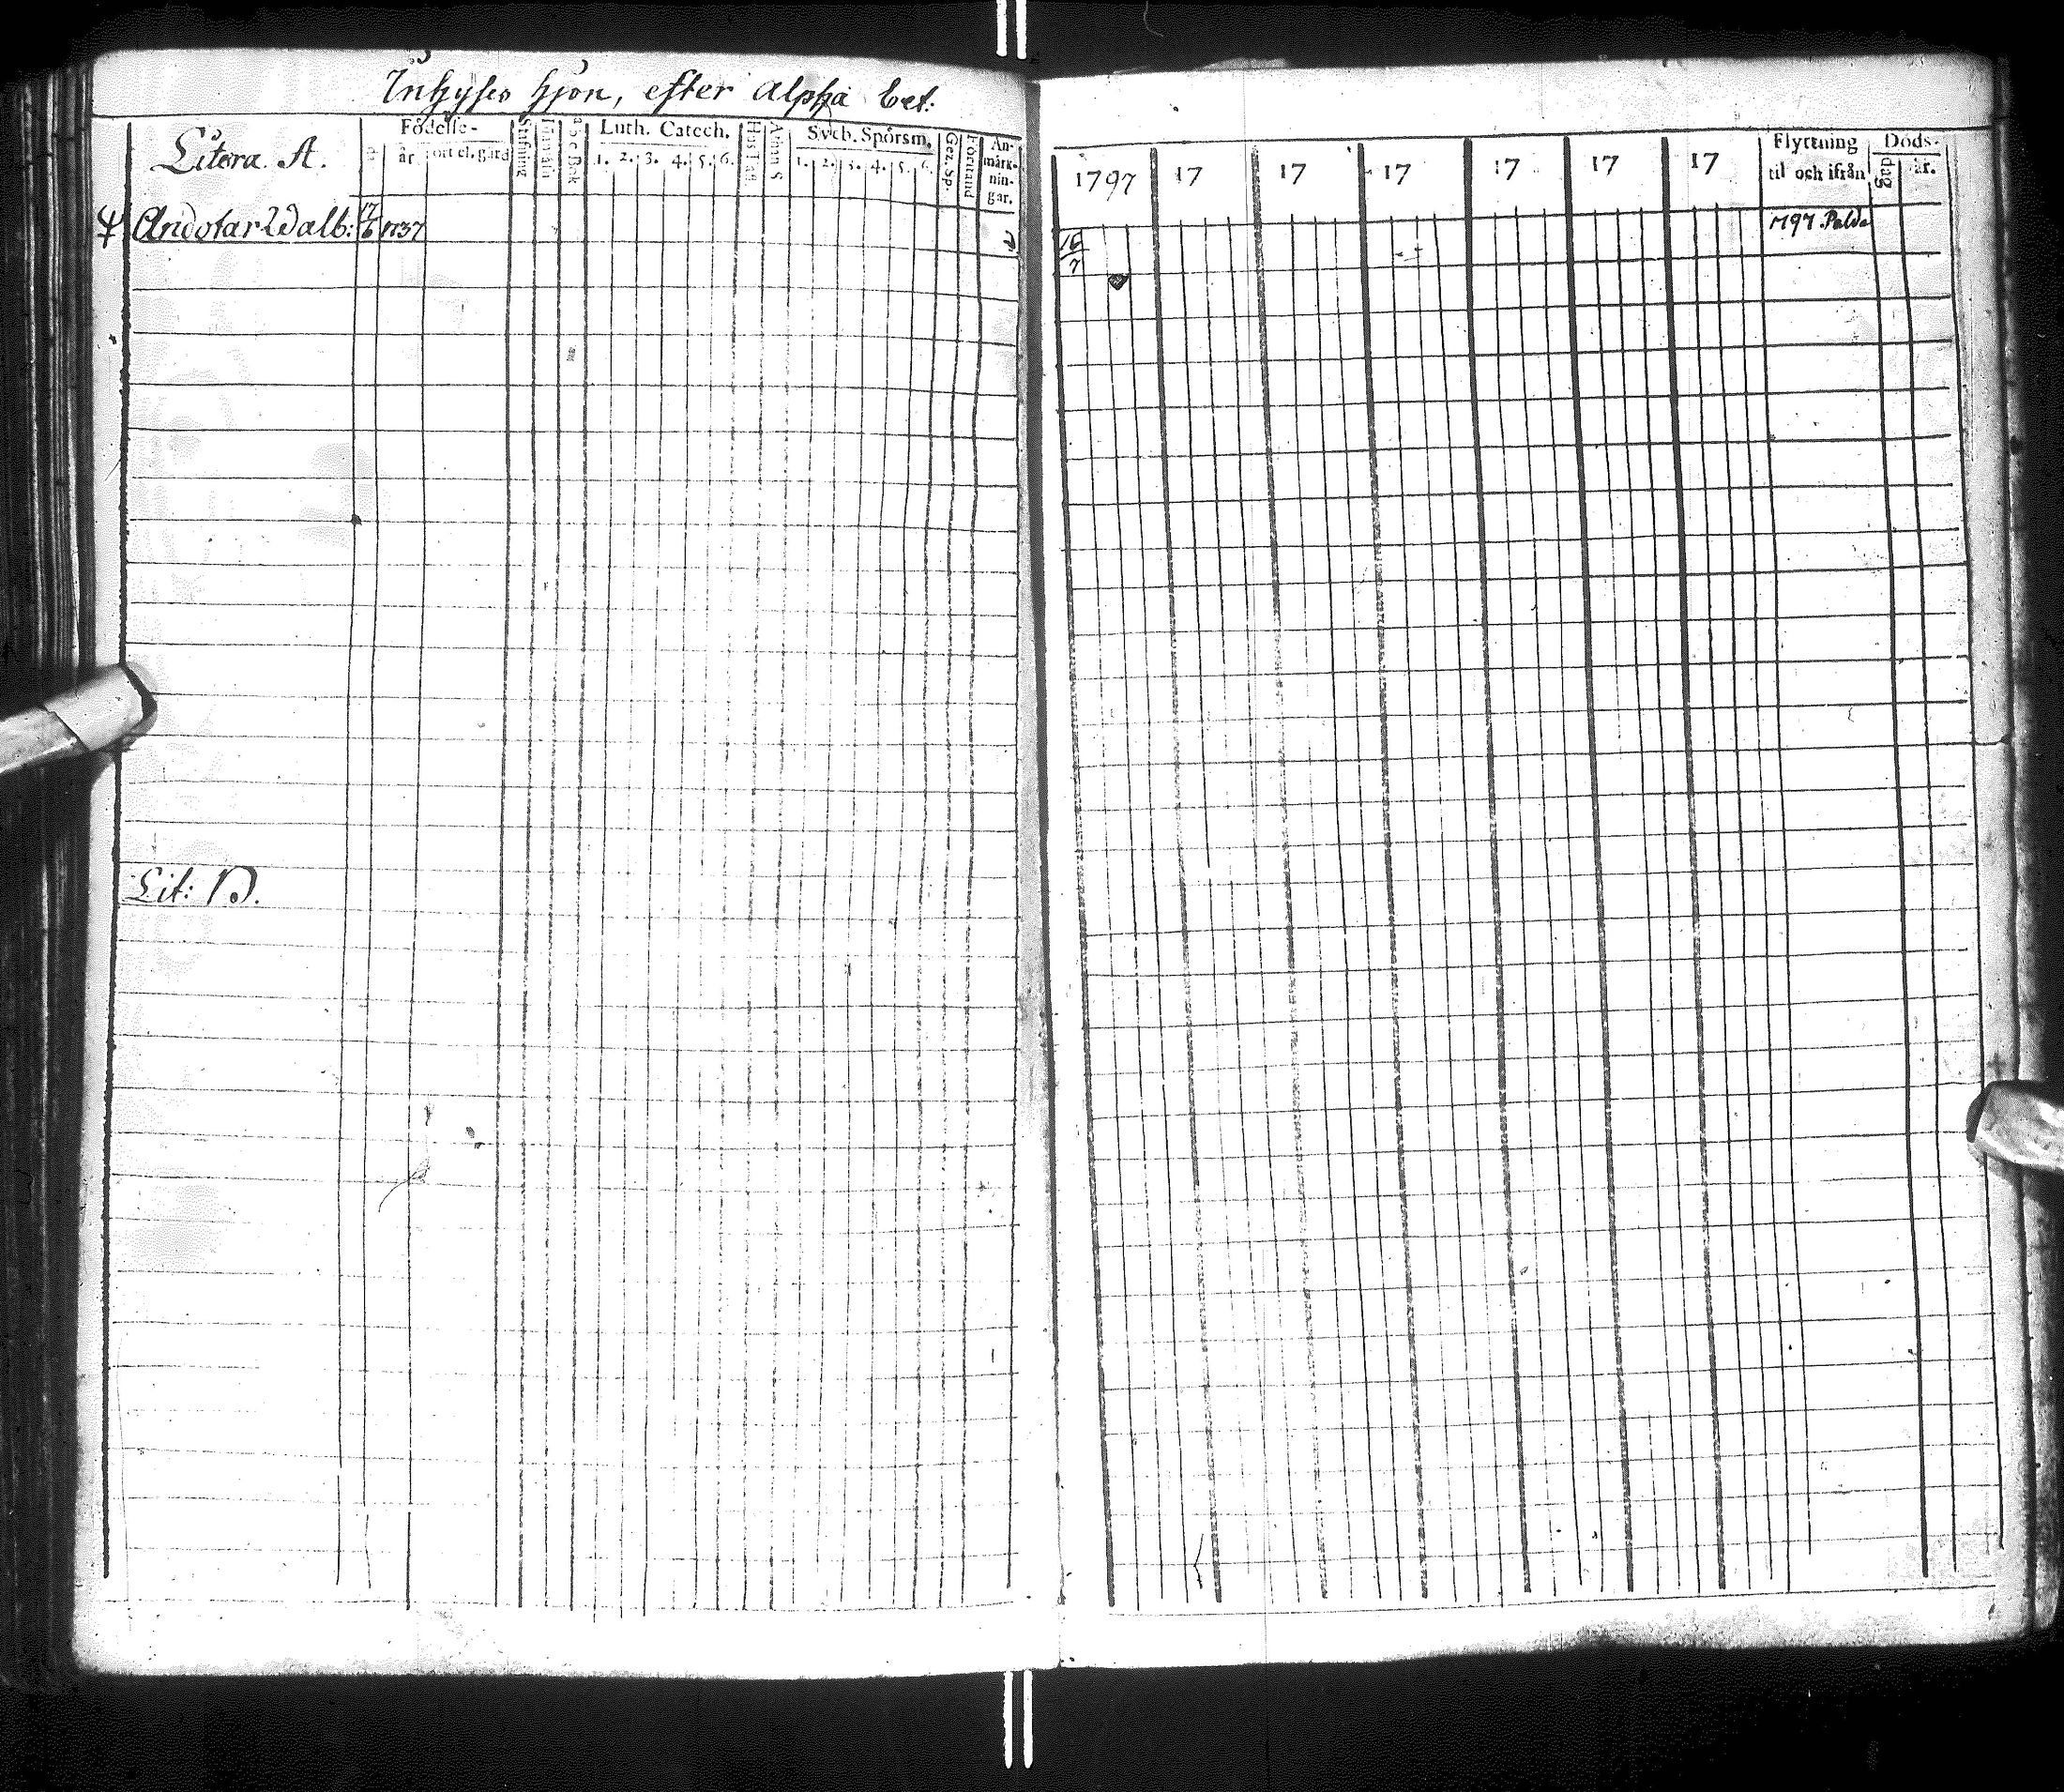 Inhyses hjon, efter Alpha bet:
Litera. A.
Födelse-
år. ort el. gård
Stafning
Innantil
a b c Bok
Luth. Catech.
1. 2. 3. 4. 5. 6.
Hus Tafl.
Athan. S
Sveb. Spörsm.
1. 2. 3. 4. 5. 6.
Gez. Sp.
Förstånd
An-
märk-
nin-
gar.
17/6 1737
Lit: B.
1797 17 17 17 17 17 17
Flyttning
til och ifrån
Döds-
dag år.
1797. Palda